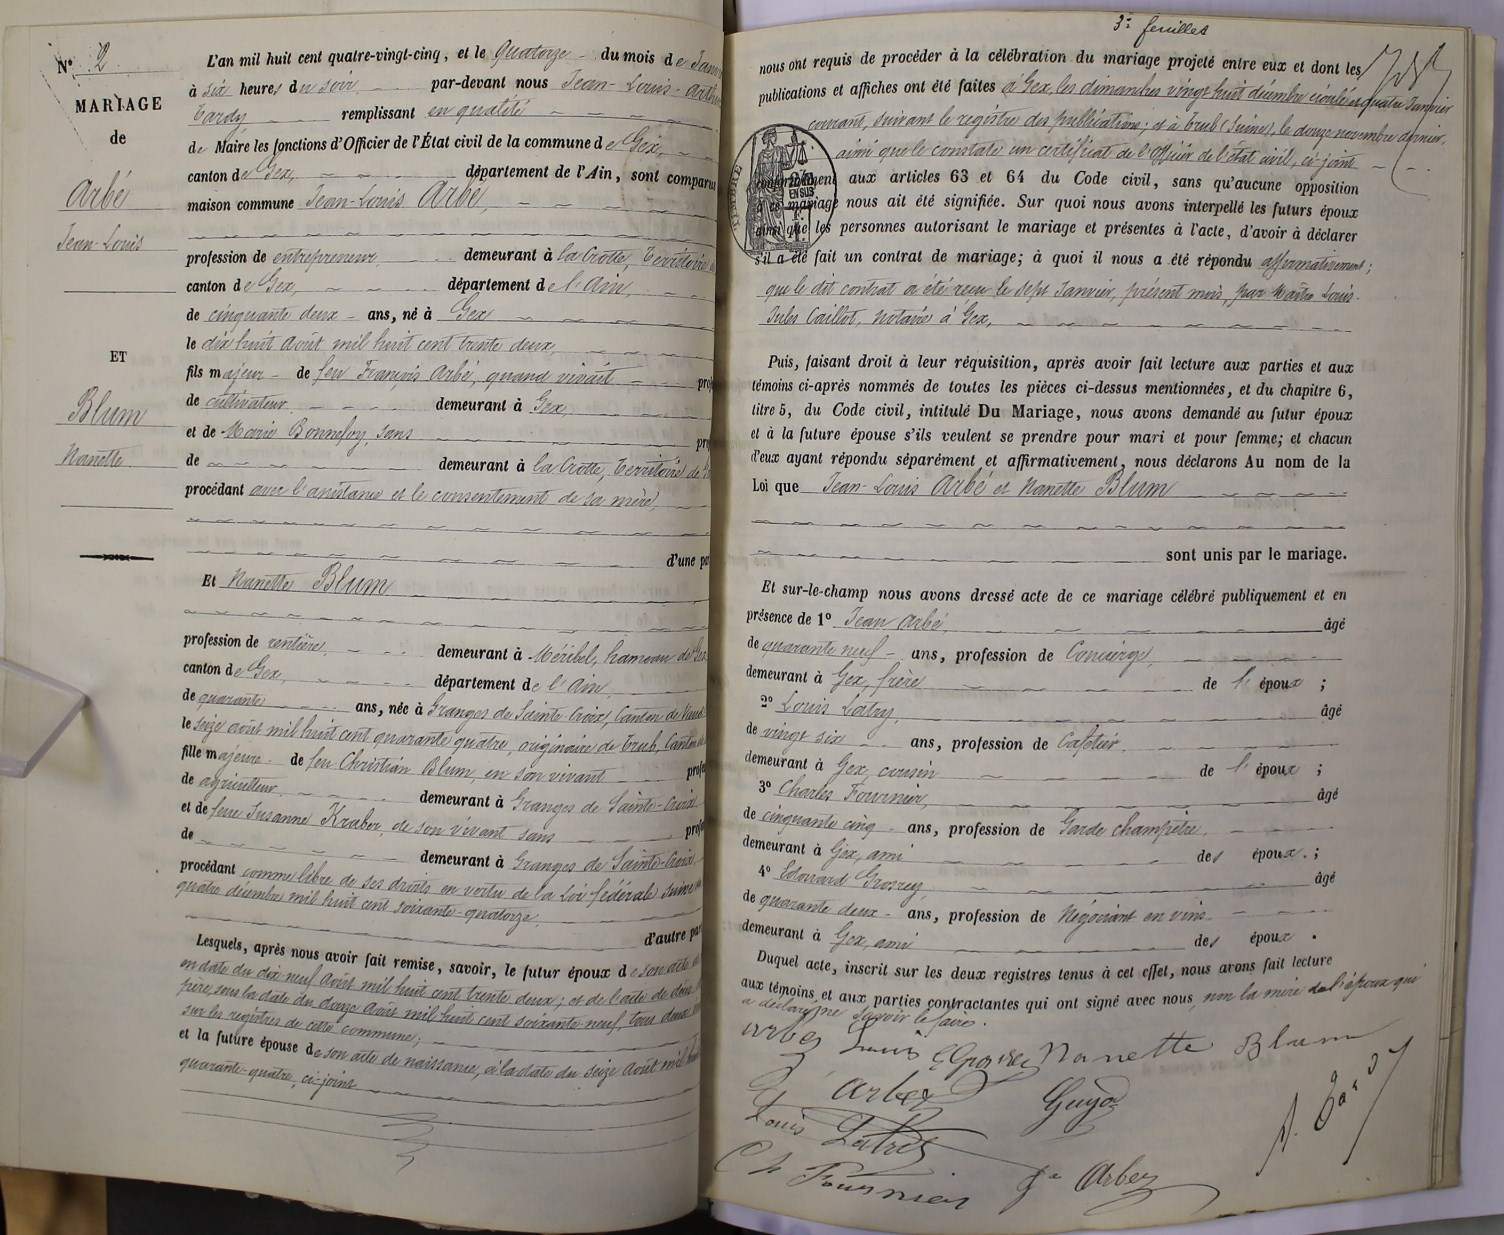 N° 2
MARIAGE
de
Arbé
Jean-Louis
ET
Blum
Nanette
L'an mil huit cent quatre-vingt-cinq, et le quatorze du mois de Janv
à six heures du soir, par-devant nous Jean-Louis-Arth
Tardy remplissant en qualité
de Maire les fonctions d'Officier de l'État civil de la commune de Gex,
canton de Gex, département de l'Ain, sont comparus
maison commune Jean-Louis Arbé,
profession de entrepreneur demeurant à la Crotte, Territoire
canton de Gex, département de l'Ain,
de cinquante deux ans, né à Gex
le dix huit Août mil huit cent trente deux,
fils majeur de feu François Arbé, quand vivait
de cultivateur demeurant à Gex
et de Marie Bonnefoy sans
de demeurant à la Crotte, Territoire de
procédant avec l'assistance et le consentement de sa mère,
d'une par
Et Nanette Blum
profession de rentière demeurant à Méribel, hameau de Gex
canton de Gex, département de l'Ain,
de quarante ans, née à Granges de Sainte Croix, Canton de Vaud
le seize août mil huit cent quarante quatre, originaire de Trub, Canton de
fille majeure de feu Christian Blum, en son vivant
de agriculteur demeurant à Granges de Sainte-Croix
et de feue Susanne Kraber, de son vivant sans
de demeurant à Granges de Sainte-Croix
procédant comme libre de ses droits en vertu de la Loi fédérale suisse
quatre décembre mil huit cent soixante-quatorze
d'autre par
Lesquels, après nous avoir fait remise, savoir, le futur époux de son acte
en date du dix neuf Août mil huit cent trente deux; et de l'acte de
père, sous la date du douze Août mil huit cent soixante neuf, tous deux
sur les registres de cette commune;
et la future épouse de son acte de naissance, à la date du seize Août mil
quarante-quatre, ci-joint
3e feuilles
nous ont requis de procéder à la célébration du mariage projeté entre eux et dont les
publications et affiches ont été faites à Gex, les dimanches vingt huit décembre écoulé et quatre Janvier
courant, suivant le registre des publications; et à Trub (Suisse), le douze novembre dernier,
ainsi que le constate un certificat de l'officier de l'état civil, ci-joint
conformément aux articles 63 et 64 du Code civil, sans qu'aucune opposition
à ce mariage nous ait été signifiée. Sur quoi nous avons interpellé les futurs époux
ainsi que les personnes autorisant le mariage et présentes à l'acte, d'avoir à déclarer
s'il a été fait un contrat de mariage; à quoi il nous a été répondu affirmativement;
que le dit contrat a été reçu le sept Janvier, présent mois, par Maître Louis
Jules Caillot, notaire à Gex,
TIMBRE
EN SUS
Puis, faisant droit à leur réquisition, après avoir fait lecture aux parties et aux
témoins ci-après nommés de toutes les pièces ci-dessus mentionnées, et du chapitre 6,
titre 5, du Code civil, intitulé Du Mariage, nous avons demandé au futur époux
et à la future épouse s'ils veulent se prendre pour mari et pour femme; et chacun
d'eux ayant répondu séparément et affirmativement, nous déclarons Au nom de la
Loi que Jean-Louis Arbé et Nanette Blum
sont unis par le mariage.
Et sur-le-champ nous avons dressé acte de ce mariage célébré publiquement et en
présence de 1° Jean Arbé, âgé
de quarante neuf ans, profession de Concierge,
demeurant à Gex, frère de l' époux ;
2° Louis Latry, âgé
de vingt six ans, profession de Cafetier.
demeurant à Gex, cousin de l' époux ;
3° Charles Fournier, âgé
de cinquante cinq ans, profession de Garde champêtre.
demeurant à Gex, ami des époux ;
4° Edouard Grosrey, âgé
de quarante deux ans, profession de Négociant en vins
demeurant à Gex, ami des époux .
Duquel acte, inscrit sur les deux registres tenus à cet effet, nous avons fait lecture
aux témoins et aux parties contractantes qui ont signé avec nous, non la mère de l'époux qui
a déclaré ne savoir le faire.
Arbez Louis Nanette Blum
Arbez
Louis Latry
Ch Fournier Arbez